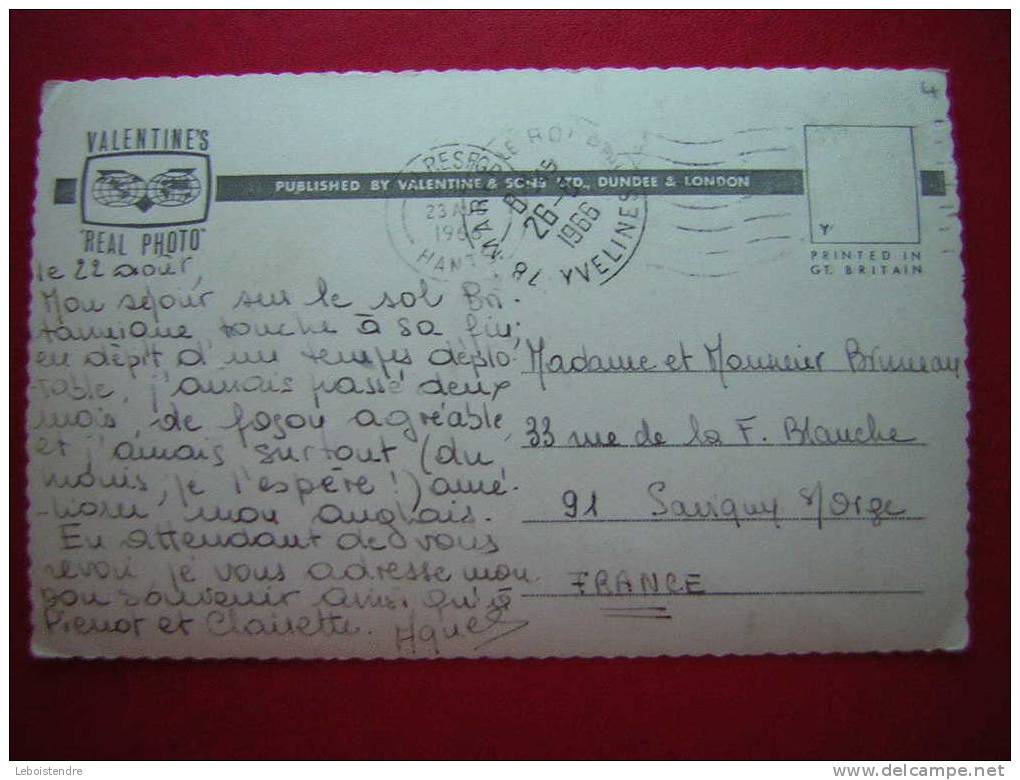 VALENTINE'S
"REAL PHOTO"
PUBLISHED BY VALENTINE & SONS LTD., DUNDEE & LONDON
23 A
1966
HANT
MAR LE ROI
26-8
1966
78 YVELINES
4
Y
PRINTED IN
GT. BRITAIN
le 22 août,
Mon séjour sur le sol Bri-
tannique touche à sa fin;
en dépit d'un temps déplo-
rable, j'aurais passé deux
mois, de façon agréable,
et j'aurais surtout (du
moins, je l'espère!) amé-
-lioré mon anglais.
En attendant de vous
revoir, je vous adresse mon
bon souvenir ainsi qu'à
Pierrot et Clairette. Agnès
Madame et Monsieur Bruneau
33 rue de la F. Blanche
91 Savigny s/Orge
FRANCE
Leboistendre
www.delcampe.net